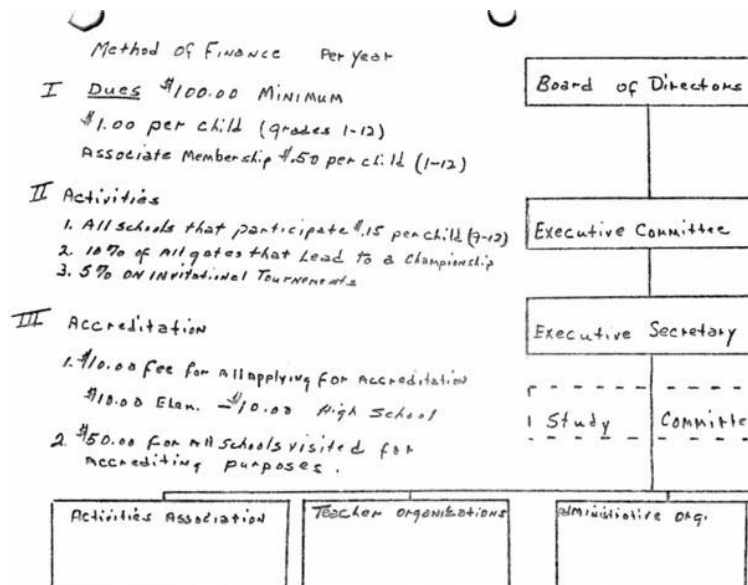 Method of Finance Per year
I Dues $100.00 Minimum
$1.00 per child (grades 1-12)
Associate Membership $.50 per child (1-12)
II Activities
1. All schools that participate $.15 per child (7-12)
2. 10% of All gates that Lead to a Championship
3. 5% on Invitational Tournements
III Accreditation
1. $10.00 fee for All applying for Accreditation
$10.00 Elem. - $10.00 High School
2. $50.00 for All schools visited for
Accrediting purposes.
Board of Directors
Executive Committee
Executive Secretary
Study Committe
Activities Association
Teacher Organizations
Administrative Org.